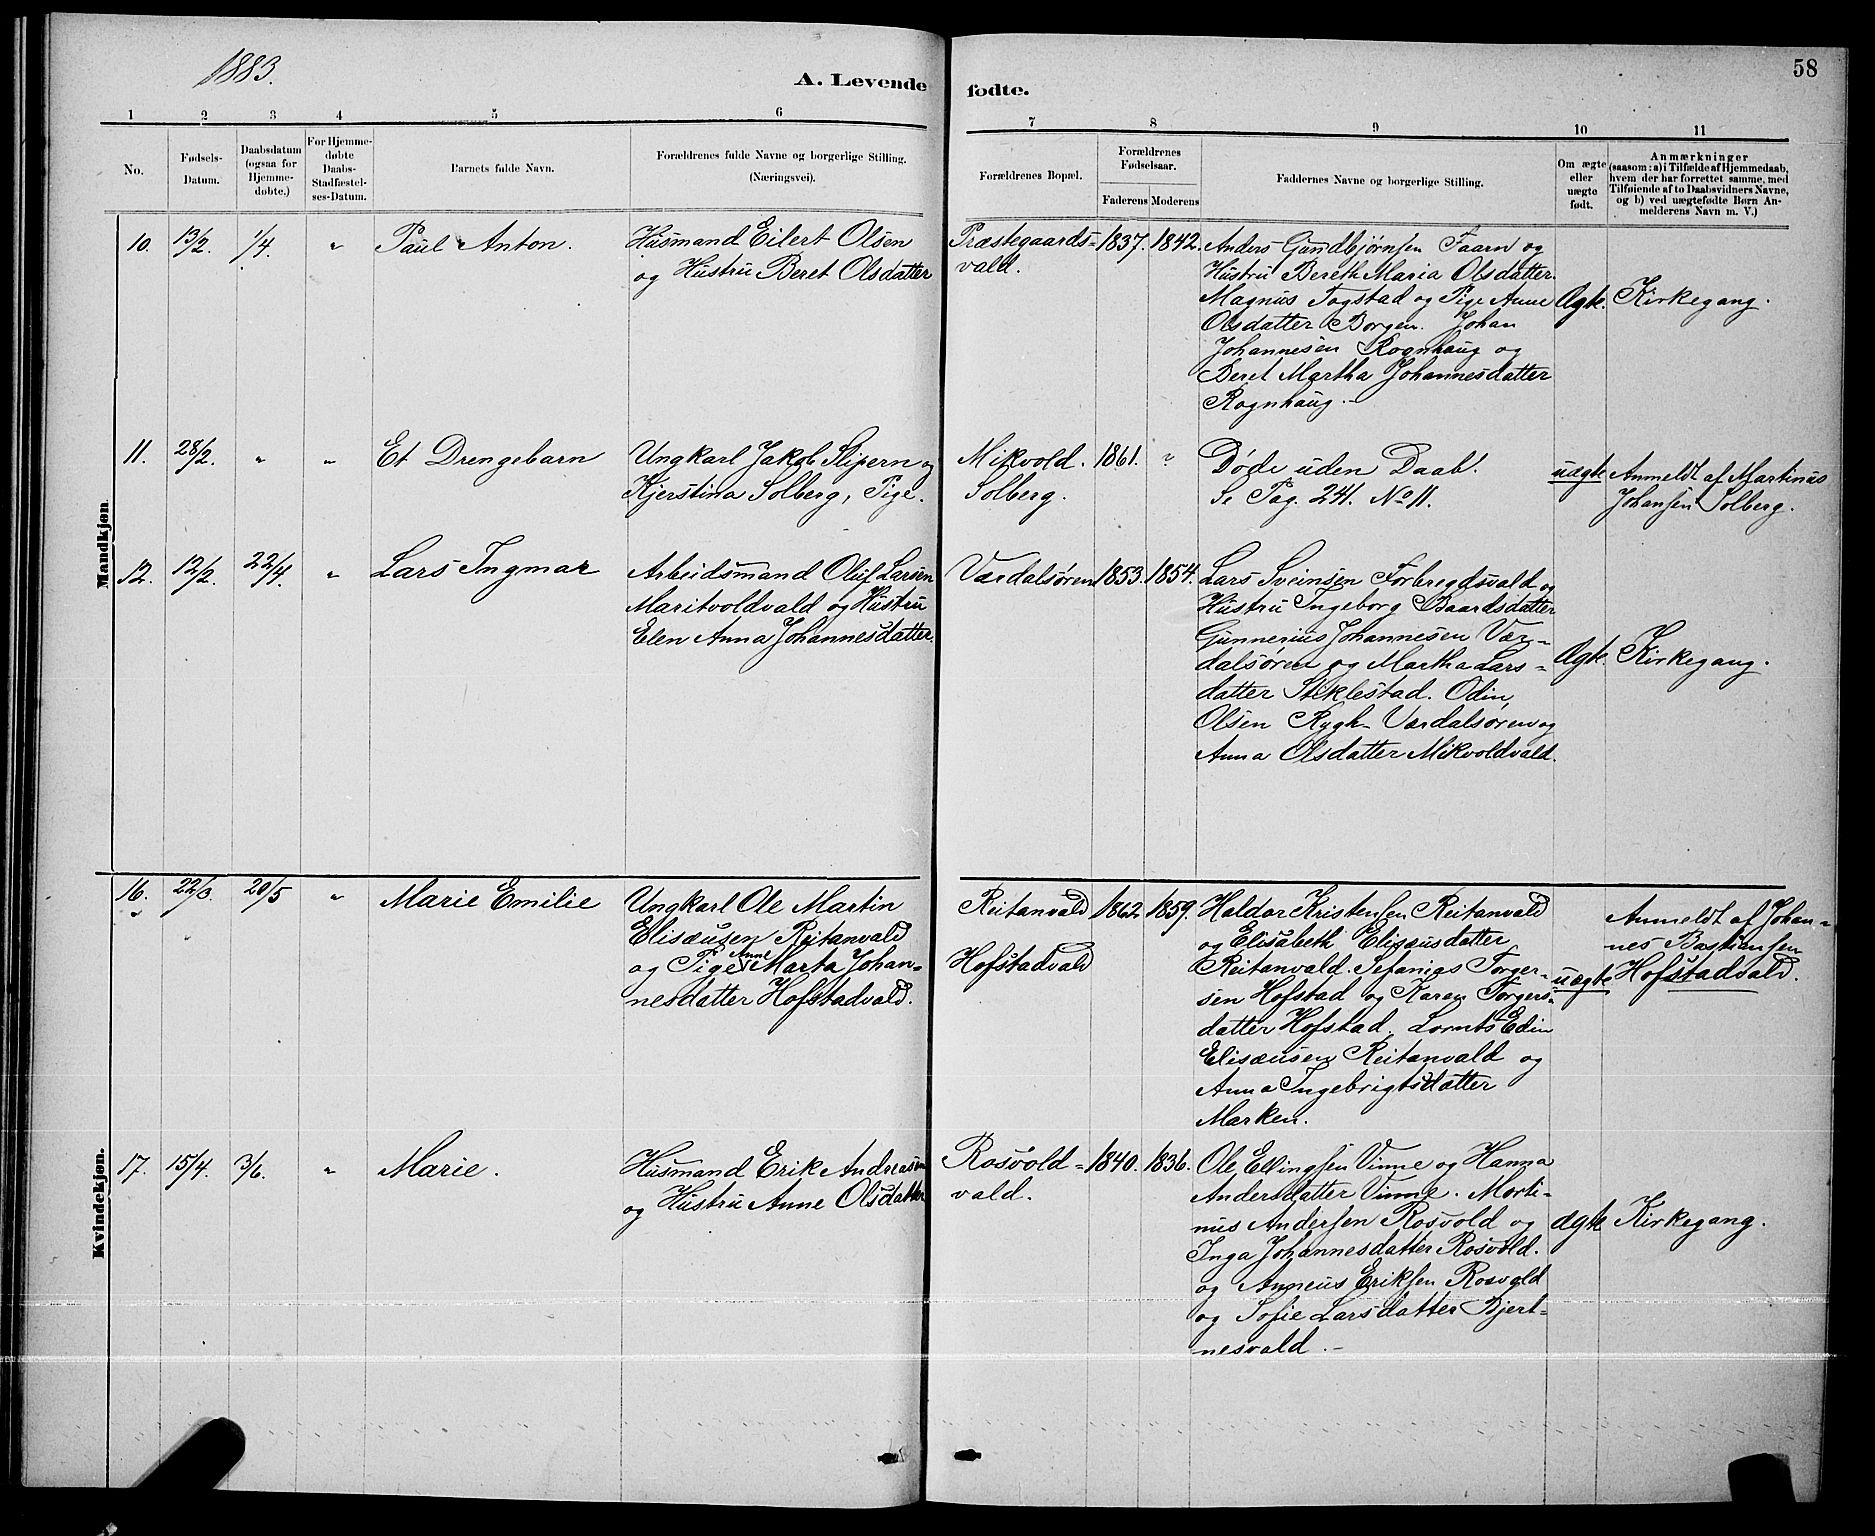 1883.
A. Levende fødte.
58
1 2 3 4 5 6 7 8 9 10 11
No.
Fødsels-
Datum.
Daabsdatum
(ogsaa for
Hjemme-
døbte.)
For Hjemme-
døbte
Daabs-
Stadfæstel-
ses-Datum.
Barnets fulde Navn.
Forældrenes fulde Navne og borgerlige Stilling.
(Næringsvei).
Forældrenes Bopæl.
Forældrenes
Fødselsaar.
Faderens Moderens
Faddernes Navne og borgerlige Stilling.
Om ægte
eller
uægte
født.
Anmærkninger
(saasom: a) Tilfælde af Hjemmedaab,
hvem der har forrettet samme, med
Tilføiende af to Daabsvidners Navne,
og b) ved uægtefødte Børn An-
melderens Navn m. V.)
Mandkjøn
10. 13/2. 1/4. " Paul Anton.
Husmand Eilert Olsen
og Hustru Beret Olsdatter
Præstegaards-
vald.
1837. 1842.
Anders Gundbjørnsen Faarn og
Hustru Bereth Maria Olsdatter.
Magnus Togstad og Pige Anne
Olsdatter Borgen. Johan
Johannesen Rognhaug og
Beret Martha Johannesdatter
Rognhaug.-
Ægte. Kirkegang.
11. 28/2. " " Et Drengebarn
Ungkarl Jakob Slipern og
Kjerstina Solberg, Pige.
Mikvold.
Solberg.
1861. ?
Døde uden Daab.
Se Pag. 241. No 11.
uægte
Anmeldt af Martinus
Johansen Solberg.
12. 12/2. 22/4. " Lars Ingmar
Arbeidsmand Oluf Larsen
Maritvoldvald og Hustru
Elen Anna Johannesdatter.
Værdalsøren
1853. 1854.
Lars Sveinsen Forbregdsvald og
Hustru Ingeborg Baardsdatter
Gunnerius Johannesen Vær-
dalsøren og Martha Lars-
datter Stiklestad. Odin
Olsen Rygh Værdalsøren og
Anna Olsdatter Mikvoldvald.
Ægte. Kirkegang.
Kvindekjøn.
16. 22/3. 20/5 " Marie Emilie
Ungkarl Ole Martin
Elisæusen Reitanvald
og Pige Anne Marta Johan-
nesdatter Hofstadvald.
Reitanvald
Hofstadvald
1862. 1859.
Haldor Kristensen Reitanvald
og Elisabeth Elisæusdatter
Reitanvald. Sefanias Torger-
sen Hofstad og Karen Torgers-
datter Hofstad. Lornts Edin
Elisæusen Reitanvald og
Anna Ingebrigtsdatter
Marken.
uægte
Anmeldt af Johan-
nes Bastiansen
Hofstadvald.
17. 15/4. 3/6. " Marie.
Husmand Erik Andreasen
og Hustru Anne Olsdatter
Rosvold-
vald.
1840. 1836.
Ole Ellingsen Vinne og Hanna
Andersdatter Vinne. Morti-
nus Andersen Rosvold og
Inga Johannesdatter Rosvold.
og Anneus Eriksen Rosvold
og Sofie Larsdatter Bjert-
nesvald.-
ægte Kirkegang.